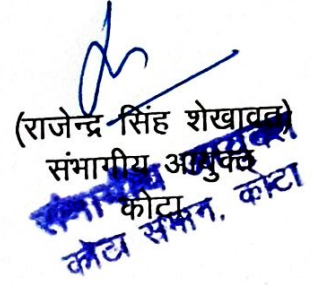 (राजेन्द्र सिंह शेखावत)
संभागीय आयुक्त
कोटा
संभागीय आयुक्त
कोटा संभाग, कोटा